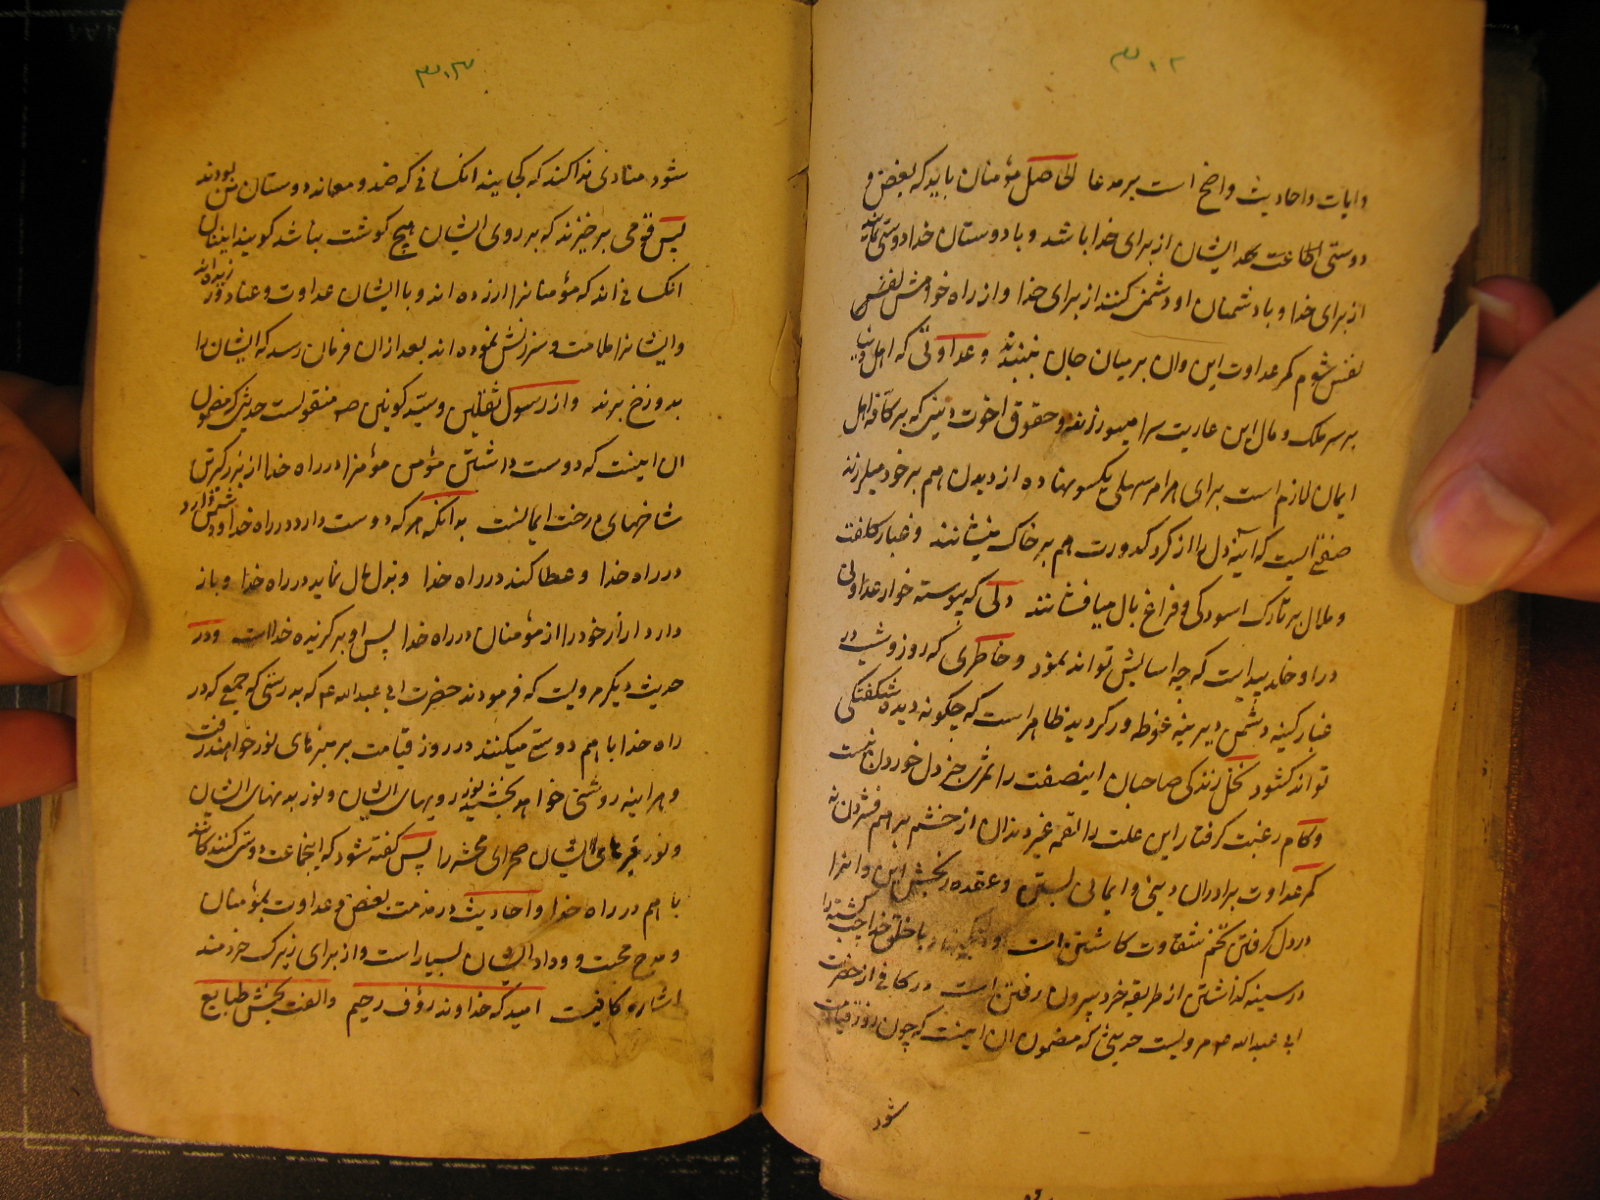 ۳۰۲
و ایات و احادیث واضح است بر مدعا الحاصل مؤمنان باید که بغض و
دوستی اطاعت بهد ایشان از برای خدا باشد و با دوستان خدا دوستی نمایند
از برای خدا و با دشمنان او دشمنی کنند از برای خدا و از راه خواهش نفس
نفس شوم کمر عداوت این وان بر میان جان نبندند و عداوتی که اهل دنیا
بر سر ملک و مال این عاریت سرا میورزند و حقوق اخوت دینی که بر کافه اهل
ایمان لازم است برای هر امر سهلی یکسو نهاده از دیدن هم بر خود میلرزند
صفتی است که آینه دل را از کرد کدورت هم بر خاک مینشانند و غبار کلفت
و ملال بر تارک اسودکی و فراغ بال میافشانند دلی که پیوسته خوار عداوتی
در او خلد پیداست که چه اسایش تواند نمود و خاطری که روز و شب در
غبار کینه دشمن دیرینه غوطه ور کردید ظاهر است که چکونه دیده شکفتکی
تواند کشود نخل زندکی صاحبان اینصفت را ثمری جز دل خوردن نیست
و کام رغبت کرفتار این علت را لقمه غیر دندان از خشم بر هم فشردن نه
کمر عداوت برادران دینی و ایمانی بستن و عقده رنجش این و انرا
در دل کرفتن تخم شقاوت کاشتن است و با خلق خدا
در سینه کذاشتن از طریقه خرد بیرون رفتن است در کافی از حضرت
ابی عبدالله ع مرویست حدیثی که مضمون ان اینست که چون روز قیامت
شود
۳۰۳
شود منادی ندا کند که کجایند انکسانی که ضد و معاند دوستان من بودند
پس قومی بر خیزند که بر روی ایشان هیچ کوشت نباشد کویند اینان
انکسانی اند که مؤمنانرا ازرده اند و با ایشان عداوت و عناد ورزیده اند
و ایشانرا ملامت و سرزنش نموده اند بعد از ان فرمان رسد که ایشان را
بدوزخ برند و از رسول ثقلین و سید کونین صه منقولست حدیثی که مضمون
ان اینست که دوست داشتن مؤمن مؤمنرا در راه خدا از بزرکترین
شاخهای درخت ایمانست بدانکه هر که دوست دارد در راه خدا و دشمن دارد
در راه خدا و عطا کند در راه خدا و بذل مال نماید در راه خدا و باز
دارد ازار خود را از مؤمنان در راه خدا پس او برکزیده خداست و در
حدیث دیکر مرویست که فرمودند حضرت ابی عبدالله ع که بدرستی که جمعی که در
راه خدا با هم دوستی میکنند در روز قیامت بر منبرهای نور خواهند رفت
و هر اینه روشنی خواهد بخشید نور رویهای ایشان و نور بدنهای ایشان
و نور منبرهای ایشان صحرای محشر را پس کفته شود که اینجماعت دوستی کنندکانند
با هم در راه خدا و احادیث در مذمت بغض و عداوت بمؤمنان
و مدح محبت و وداد ایشان بسیار است و از برای زیرک خردمند
اشاره کافیست امید که خداوند رؤف رحیم و الفت بخش طبایع